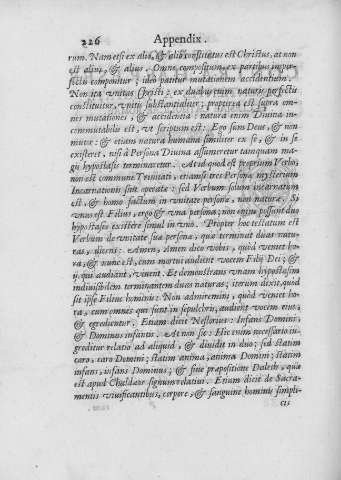 226 Appendix.
rum. Nam etsi ex alio, & alio constitutus est Christus, at non
est alius, & alius. Omne compositum, ex partibus imper-
fectis componitur; ideo patitur mutationem accidentium.
Non ita vnitas Christi: ex duabus enim naturis perfectis
constituitur, vnitis substantialiter; propterea est supra om-
nis mutationes, & accidentia: natura enim Diuina in-
commutabilis est, vt scriptum est: Ego sum Deus, & non
mutor: & etiam natura humana similiter ex se, & in se
existeret, nisi à Persona Diuina assumeretur tanquam ma-
gis hypostasis terminaretur. At id quod est proprium Verbo,
non est commune Trinitati, etiamsi tres Personæ mysterium
Incarnationis sint operatæ: sed Verbum solum incarnatum
est, & homo factum in vnitate personæ, non naturæ. Si
vnus est Filius, ergo & vna persona; non enim possunt duo
hypostases existere simul in vno. Propter hoc testatum est
Verbum de vnitate suæ personæ, quæ terminat duas natu-
ras, dicens: Amen, Amen dico vobis, quod venet ho-
ra, & nunc est, cum mortui audient vocem Filij Dei; &
ij, qui audient, viuent. Et demonstrans vnam hypostasim
indiuisibilem terminantem duas naturas; iterum dixit, quod
sit ipse Filius hominis: Non admiremini, quòd veniet ho-
ra, cum omnes qui sunt in sepulchris, audient vocem eius,
& egredientur. Etiam dicit Nestorius: Infans Domini,
& Dominus infantis. At non sic: Hic enim necessario in-
greditur relatio ad aliquid, & diuidit in duo: sed statim
caro, caro Domini; statim anima, anima Domini; statim
infans, infans Dominus; & sine præpositione Daleth, quæ
est apud Chaldæos signum relatiui. Etiam dicit de Sacra-
mentis viuificantibus, corpore, & sanguine hominis simpli-
cis